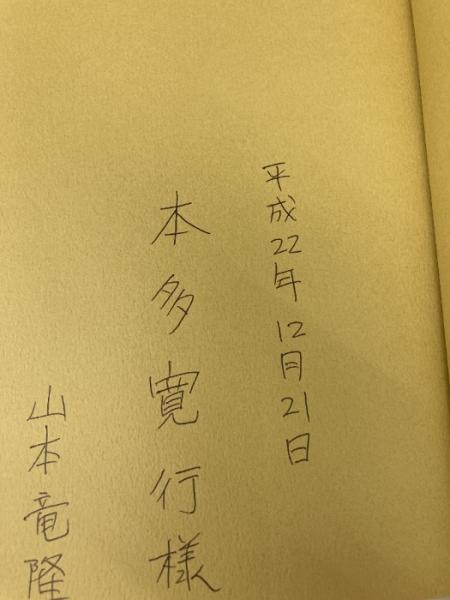 平成22年12月21日
本多寛行様
山本竜隆